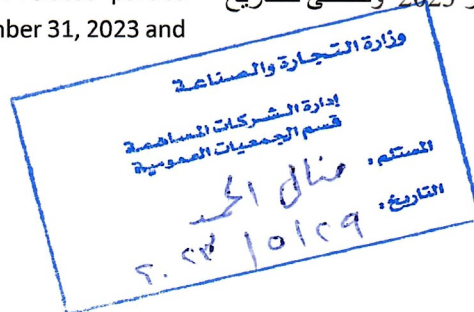 mber 31, 2023 and
2023
وزارة التجارة والصناعة
إدارة الشركات المساهمة
قسم الجمعيات العمومية
المستلم : منال الحمد
التاريخ : ٢٩/٥/٢٠٢٣